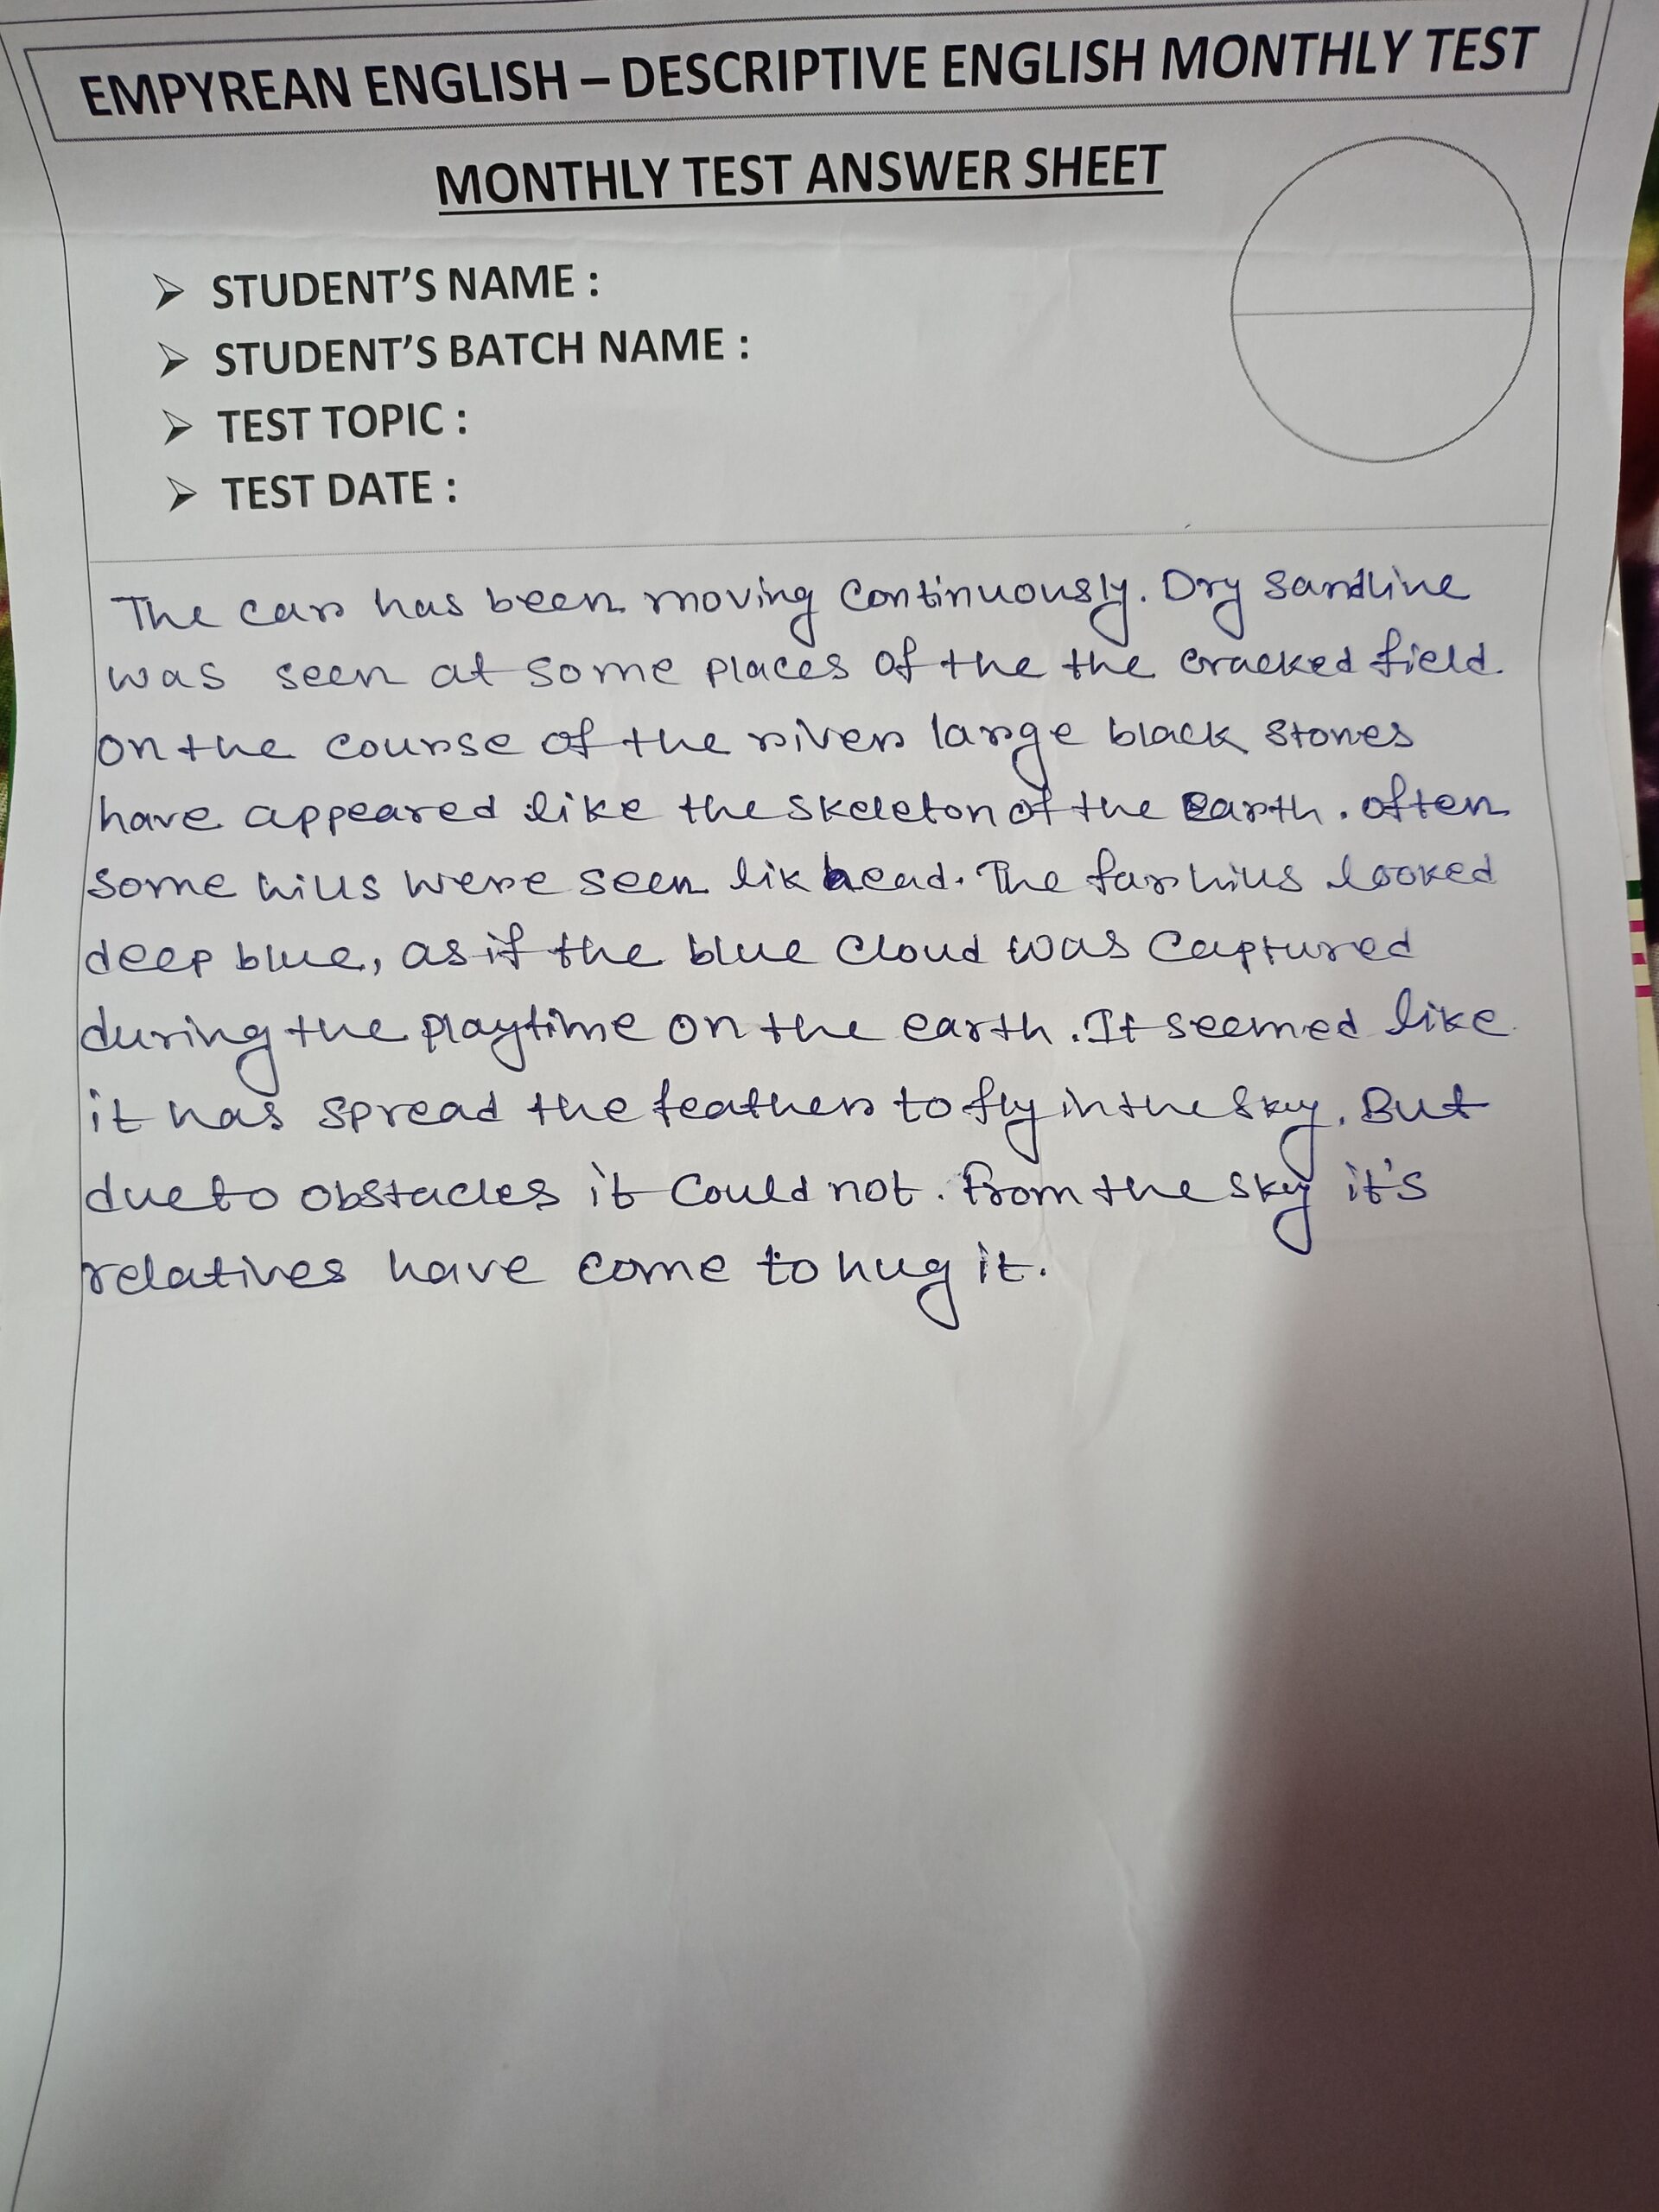 EMPYREAN ENGLISH – DESCRIPTIVE ENGLISH MONTHLY TEST
MONTHLY TEST ANSWER SHEET
➢ STUDENT'S NAME :
➢ STUDENT'S BATCH NAME :
➢ TEST TOPIC :
➢ TEST DATE :
The car has been moving continuously. Dry sandline
was seen at some places of the the cracked field.
On the course of the river large black stones
have appeared like the skeleton of the Earth. Often
some hills were seen lik head. The far hills looked
deep blue, as if the blue cloud was captured
during the playtime on the earth. It seemed like
it has spread the feather to fly in the sky. But
due to obstacles it could not. From the sky it's
relatives have come to hug it.